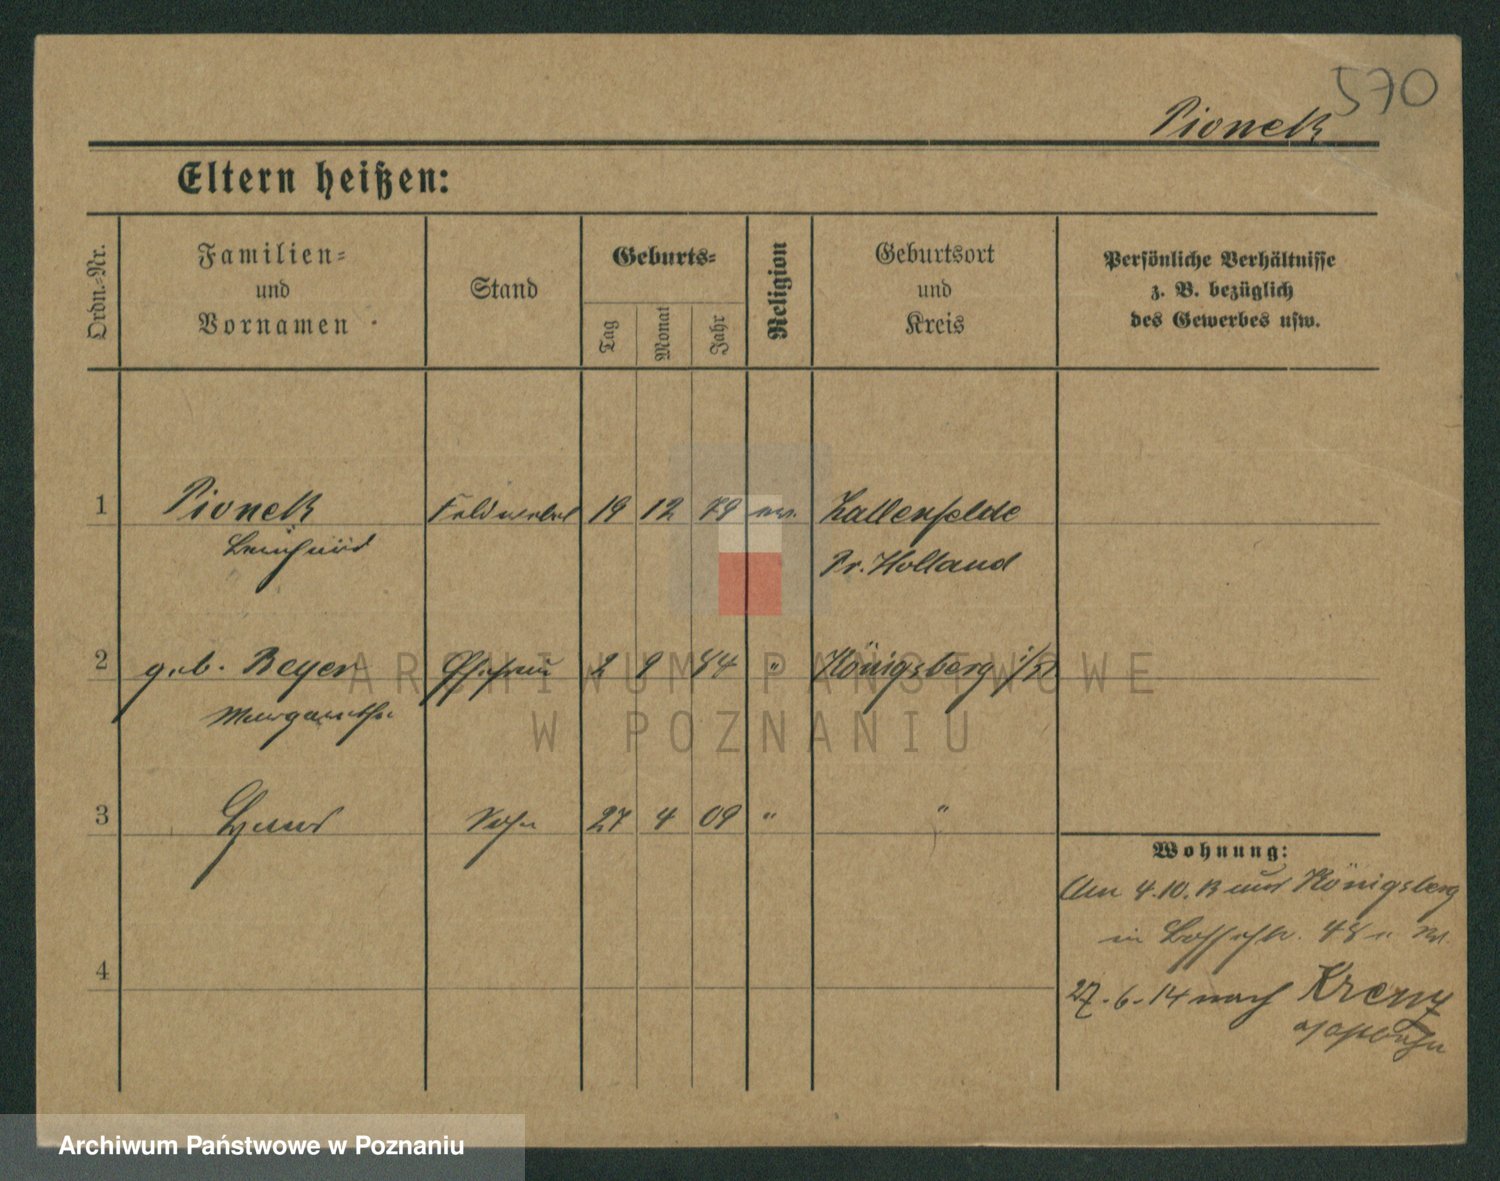 570
Pionek
Eltern heißen:
Ordn.-Nr.
Familien-
und
Vornamen
Stand
Geburts-
Tag
Monat
Jahr
Religion
Geburtsort
und
Kreis
Persönliche Verhältnisse
z. B. bezüglich
des Gewerbes usw.
1 Pionek Feldwebel 19 12 79 ev. Zallenfelde
Pr. Holland
2 geb. Beyer Ehefrau 2 9 84 " Königsberg i/Pr.
Margarethe
3 Sohn 27 4 09 " "
4
Wohnung:
Am 4.10. aus Königsberg
in 48
27.6.14 nach Kreuz
ARCHIWUM PAŃSTWOWE
W POZNANIU
Archiwum Państwowe w Poznaniu